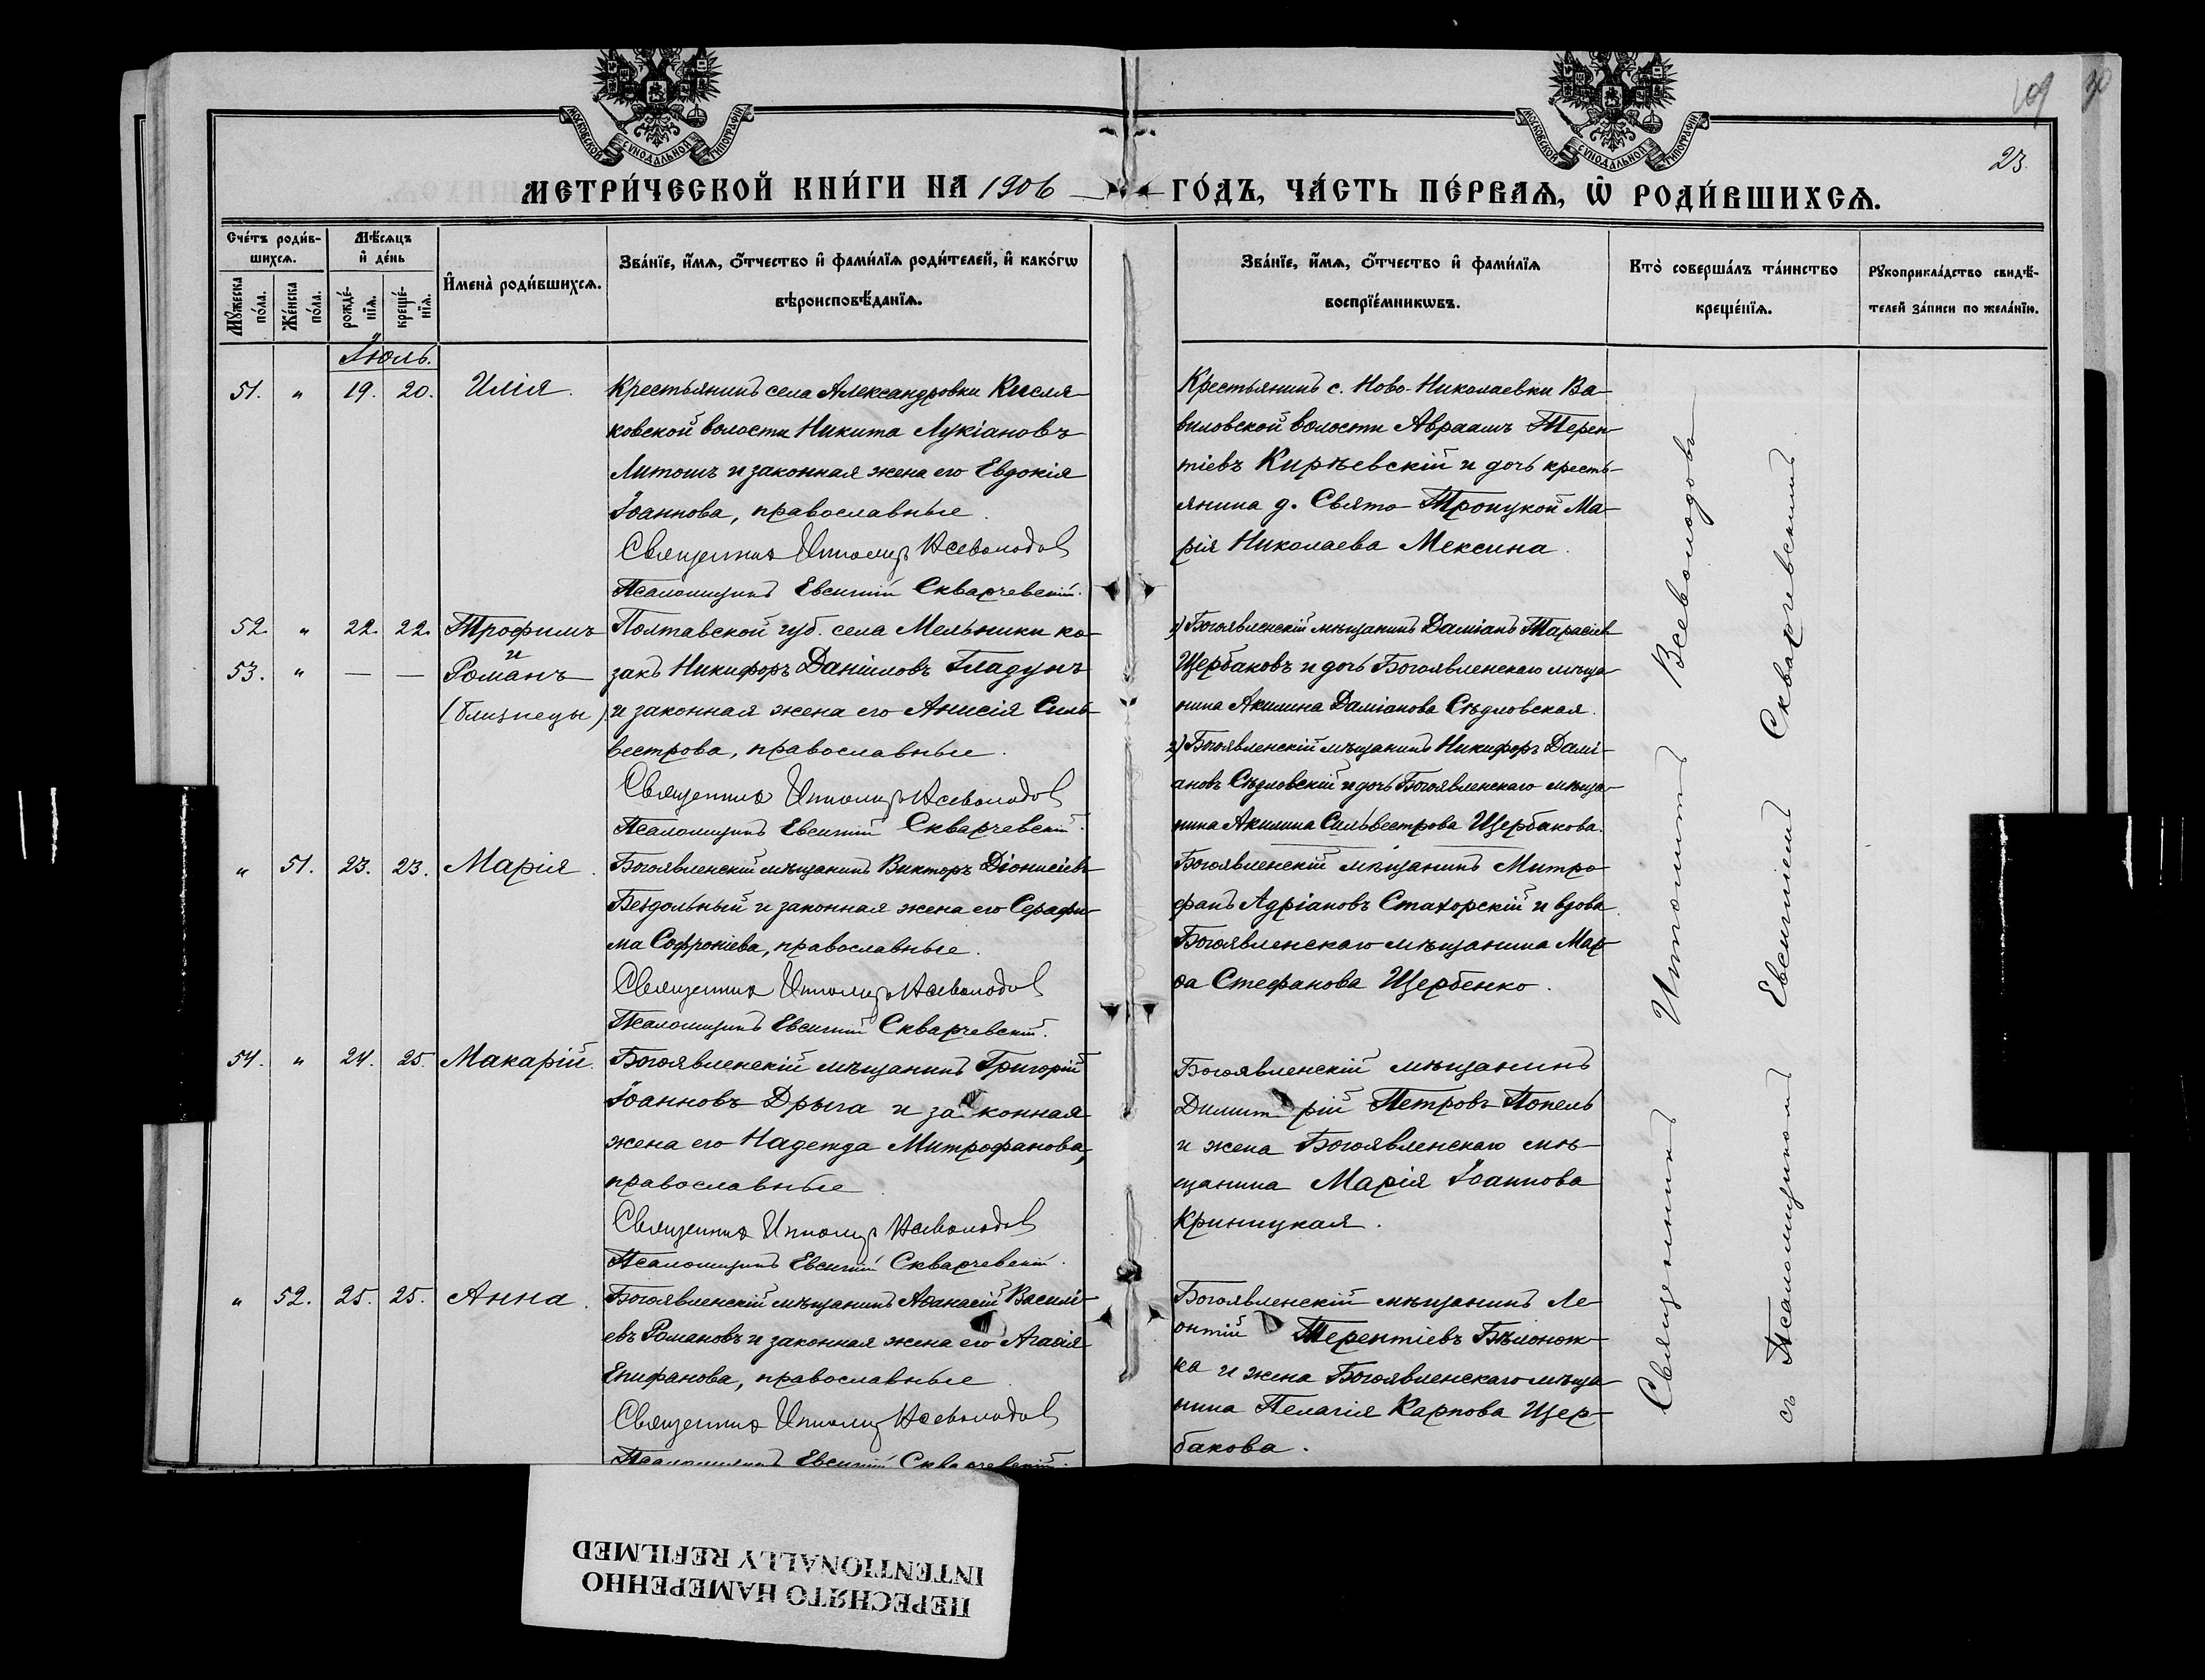 МОСКОВСКОЙ СУНОДАЛЬНОЙ ТИПОГРАФІИ
МОСКОВСКОЙ СУНОДАЛЬНОЙ ТИПОГРАФІИ
109
30
23.
МЕТРИ́ЧЕСКОЙ КНИ́ГИ НА 1906
ГО́ДЪ, ЧА́СТЬ ПЕ́РВАѦ, Ѡ҆ РОДИ́ВШИХСѦ.
Сче́тъ роди́в-
шихсѧ.
Мꙋжеска
по́ла.
Же́нска
по́ла.
Мѣ́сѧцъ
и҆ де́нь
рожде́-
нїѧ.
креще́-
нїѧ.
И҆мена̀ роди́вшихсѧ.
Зва́нїе, и҆́мѧ, ѻ҆́тчество и҆ фами́лїѧ роди́телей, и҆ како́гѡ
вѣроисповѣ́данїѧ.
Зва́нїе, и҆́мѧ, ѻ҆́тчество и҆ фами́лїѧ
воспрїе́мникѡвъ.
Кто̀ соверша́лъ та́инство
креще́нїѧ.
Рꙋкоприкла́дство свидѣ́-
телей за́писи по жела́нїю.
Іюль.
51. " 19. 20. Илія.
Крестьянинъ села Александровки Кисля-
ковской волости Никита Лукіановъ
Литошъ и законная жена его Евдокія
Іоаннова, православные.
Священникъ Ипполитъ Всеволодовъ
Псаломщикъ Евсигній Скварчевскій.
Крестьянинъ с. Ново-Николаевки Ва-
виловской волости Авраамъ Терен-
тіевъ Кирѣевскій и дочь кресть-
янина д. Свято Троицкой Ма-
рія Николаева Мексина.
52. " 22. 22. Трофимъ
и
53. " — — Романъ
(близнецы)
Полтавской губ. села Мельники ко-
закъ Никифоръ Даніиловъ Гладунъ
и законная жена его Анисія Силь-
вестрова, православные.
Священникъ Ипполитъ Всеволодовъ
Псаломщикъ Евсигній Скварчевскій.
1) Богоявленскій мѣщанинъ Даміанъ Тарасіевъ
Щербаковъ и дочь Богоявленскаго мѣща-
нина Акилина Даміанова Сѣдловская.
2) Богоявленскій мѣщанинъ Никифоръ Дамі-
ановъ Сѣдловскій и дочь Богоявленскаго мѣща-
нина Акилина Сильвестрова Щербакова.
" 51. 23. 23. Марія.
Богоявленскій мѣщанинъ Викторъ Діонисіевъ
Бездольный и законная жена его Серафи-
ма Софроніева, православные.
Священникъ Ипполитъ Всеволодовъ
Псаломщикъ Евсигній Скварчевскій.
Богоявленскій мѣщанинъ Митро-
фанъ Адріановъ Стахорскій и вдова
Богоявленскаго мѣщанина Мар-
ѳа Стефанова Щербенко.
54. " 24. 25. Макарій.
Богоявленскій мѣщанинъ Григорій
Іоанновъ Дрыга и законная
жена его Надежда Митрофанова,
православные.
Священникъ Ипполитъ Всеволодовъ
Псаломщикъ Евсигній Скварчевскій.
Богоявленскій мѣщанинъ
Димитрій Петровъ Попель
и жена Богоявленскаго мѣ-
щанина Марія Іоаннова
Криницкая.
" 52. 25. 25. Анна.
Богоявленскій мѣщанинъ Аѳанасій Василі-
евъ Романовъ и законная жена его Агаѳія
Епифанова, православные.
Священникъ Ипполитъ Всеволодовъ
Псаломщикъ Евсигній Скварчевскій.
Богоявленскій мѣщанинъ Ле-
онтій Терентіевъ Бѣлонож-
ка и жена Богоявленскаго мѣща-
нина Пелагія Карпова Щер-
бакова.
Священникъ Ипполитъ Всеволодовъ
съ Псаломщикомъ Евсигніемъ Скварчевскимъ
ПЕРЕСНЯТО НАМЕРЕННО
INTENTIONALLY REFILMED